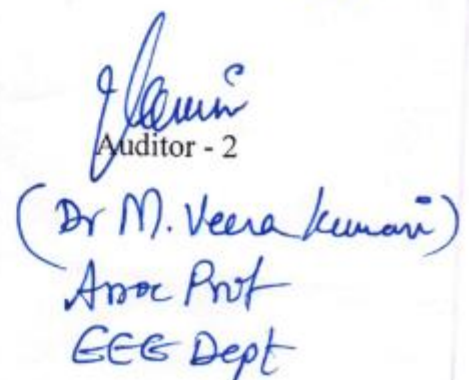 Auditor - 2
(Dr M. Veera Kumari)
Assoc Prof
EEE Dept